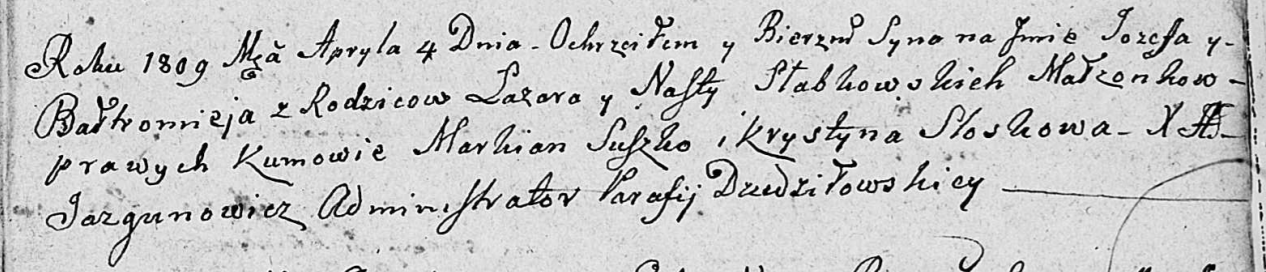 Roku 1809 Mca Apryla 4 Dnia - Ochrzciłem y Bierzm Syna na Jmie Jozefa y -
Bałtromieja z Rodzicow Łazara y Nasty Słabkowskich Małzonkow -
prawych Kumowie Markian Suszko i Krystyna Sloskowa - X
Jazgunowicz Administrator Parafij Dziedziłowskiey